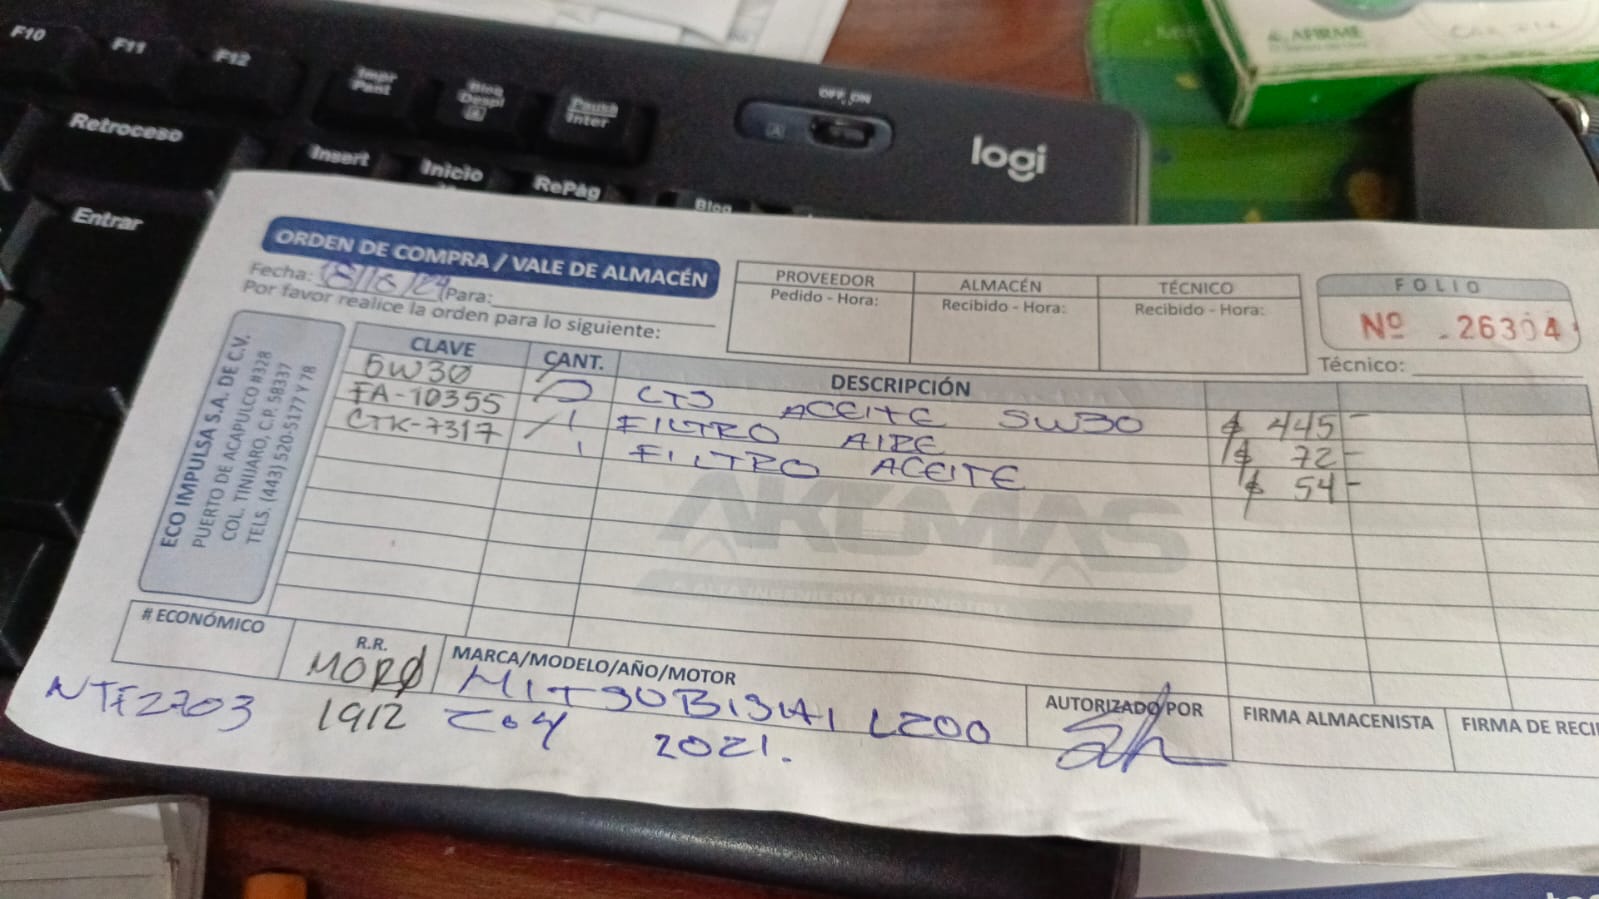 F10 F11 F12
Impr Pant
Bloq Despl
Pausa Inter
OFF ON
A
logi
Retroceso
Insert
Inicio
RePág
Bloq
Entrar
AFIRME
ORDEN DE COMPRA / VALE DE ALMACÉN
Fecha: Para:
Por favor realice la orden para lo siguiente:
PROVEEDOR ALMACÉN TÉCNICO
Pedido - Hora: Recibido - Hora: Recibido - Hora:
FOLIO
Nº 26304
Técnico:
ECO IMPULSA S.A. DE C.V.
PUERTO DE ACAPULCO #328
COL. TINIJARO, C.P. 58337
TELS. (443) 520-5177 Y 78
CLAVE CANT. DESCRIPCIÓN
5W30 2 LTS ACEITE 5W30 $ 445-
FA-10355 1 FILTRO AIRE $ 72-
CTK-7317 1 FILTRO ACEITE $ 54-
AKOMAS
ALTA INGENIERÍA AUTOMOTRIZ
# ECONÓMICO R.R. MARCA/MODELO/AÑO/MOTOR
MORØ MITSUBISHI L200
AUTORIZADO POR FIRMA ALMACENISTA FIRMA DE RECI
NTF2703 1912 2021.